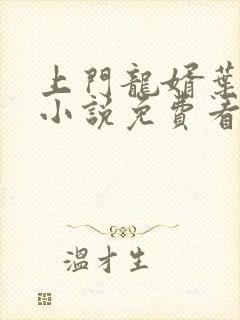 上門龍婿葉
小說免費看
溫才生